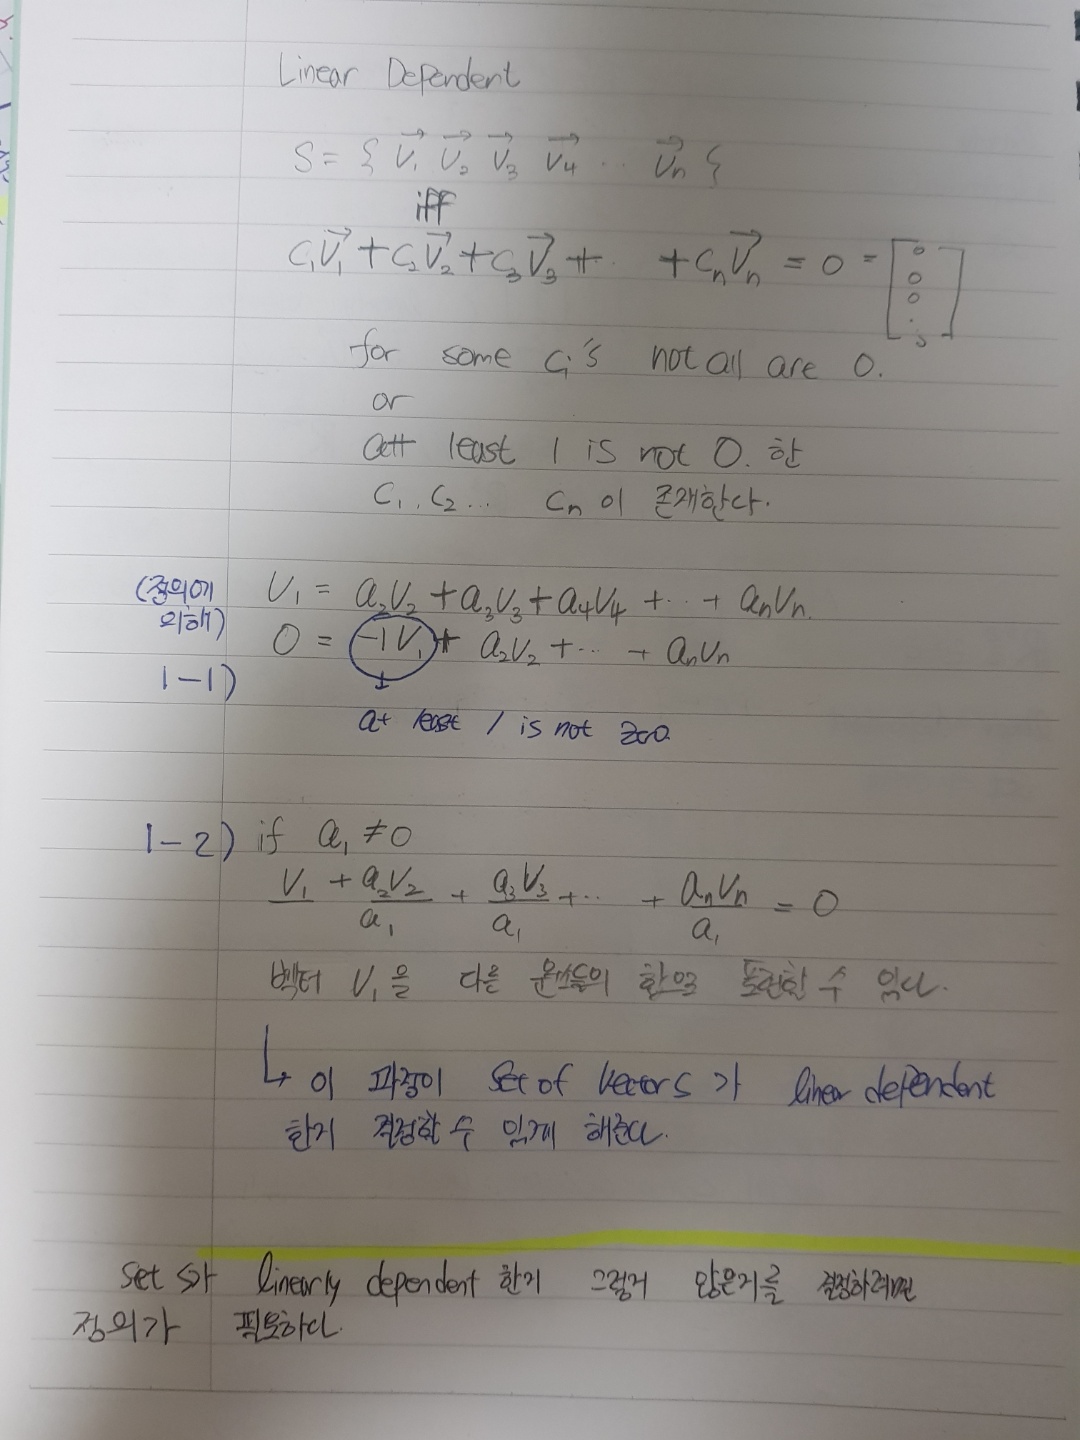 Linear Dependent
S = { v₁ v₂ v₃ v₄ .. vₙ {
iff
C₁V₁ + C₂V₂ + C₃V₃ + .. + CₙVₙ = 0 = [0 0 0 .
for some Cᵢ's not all are 0.
or
least 1 is not 0. 한
C₁, C₂ ... Cₙ 이 존재한다.
(정의에 의해) V₁ = a₂V₂ + a₃V₃ + a₄V₄ + ... + aₙVₙ.
0 = -1V₁ + a₂V₂ + ... + aₙVₙ
1-1)
at least 1 is not zero.
1-2) if a₁ ≠ 0
V₁ + a₂V₂/a₁ + a₃V₃/a₁ + .. + aₙVₙ/a₁ = 0
벡터 V₁을 다른 원소들의 합으로 표현할 수 있다.
↳ 이 과정이 Set of Vectors 가 linear dependent
한지 결정할 수 있게 해준다.
Set S가 linearly dependent 한지 그렇지 않은지를 결정하려면
정의가 필요하다.